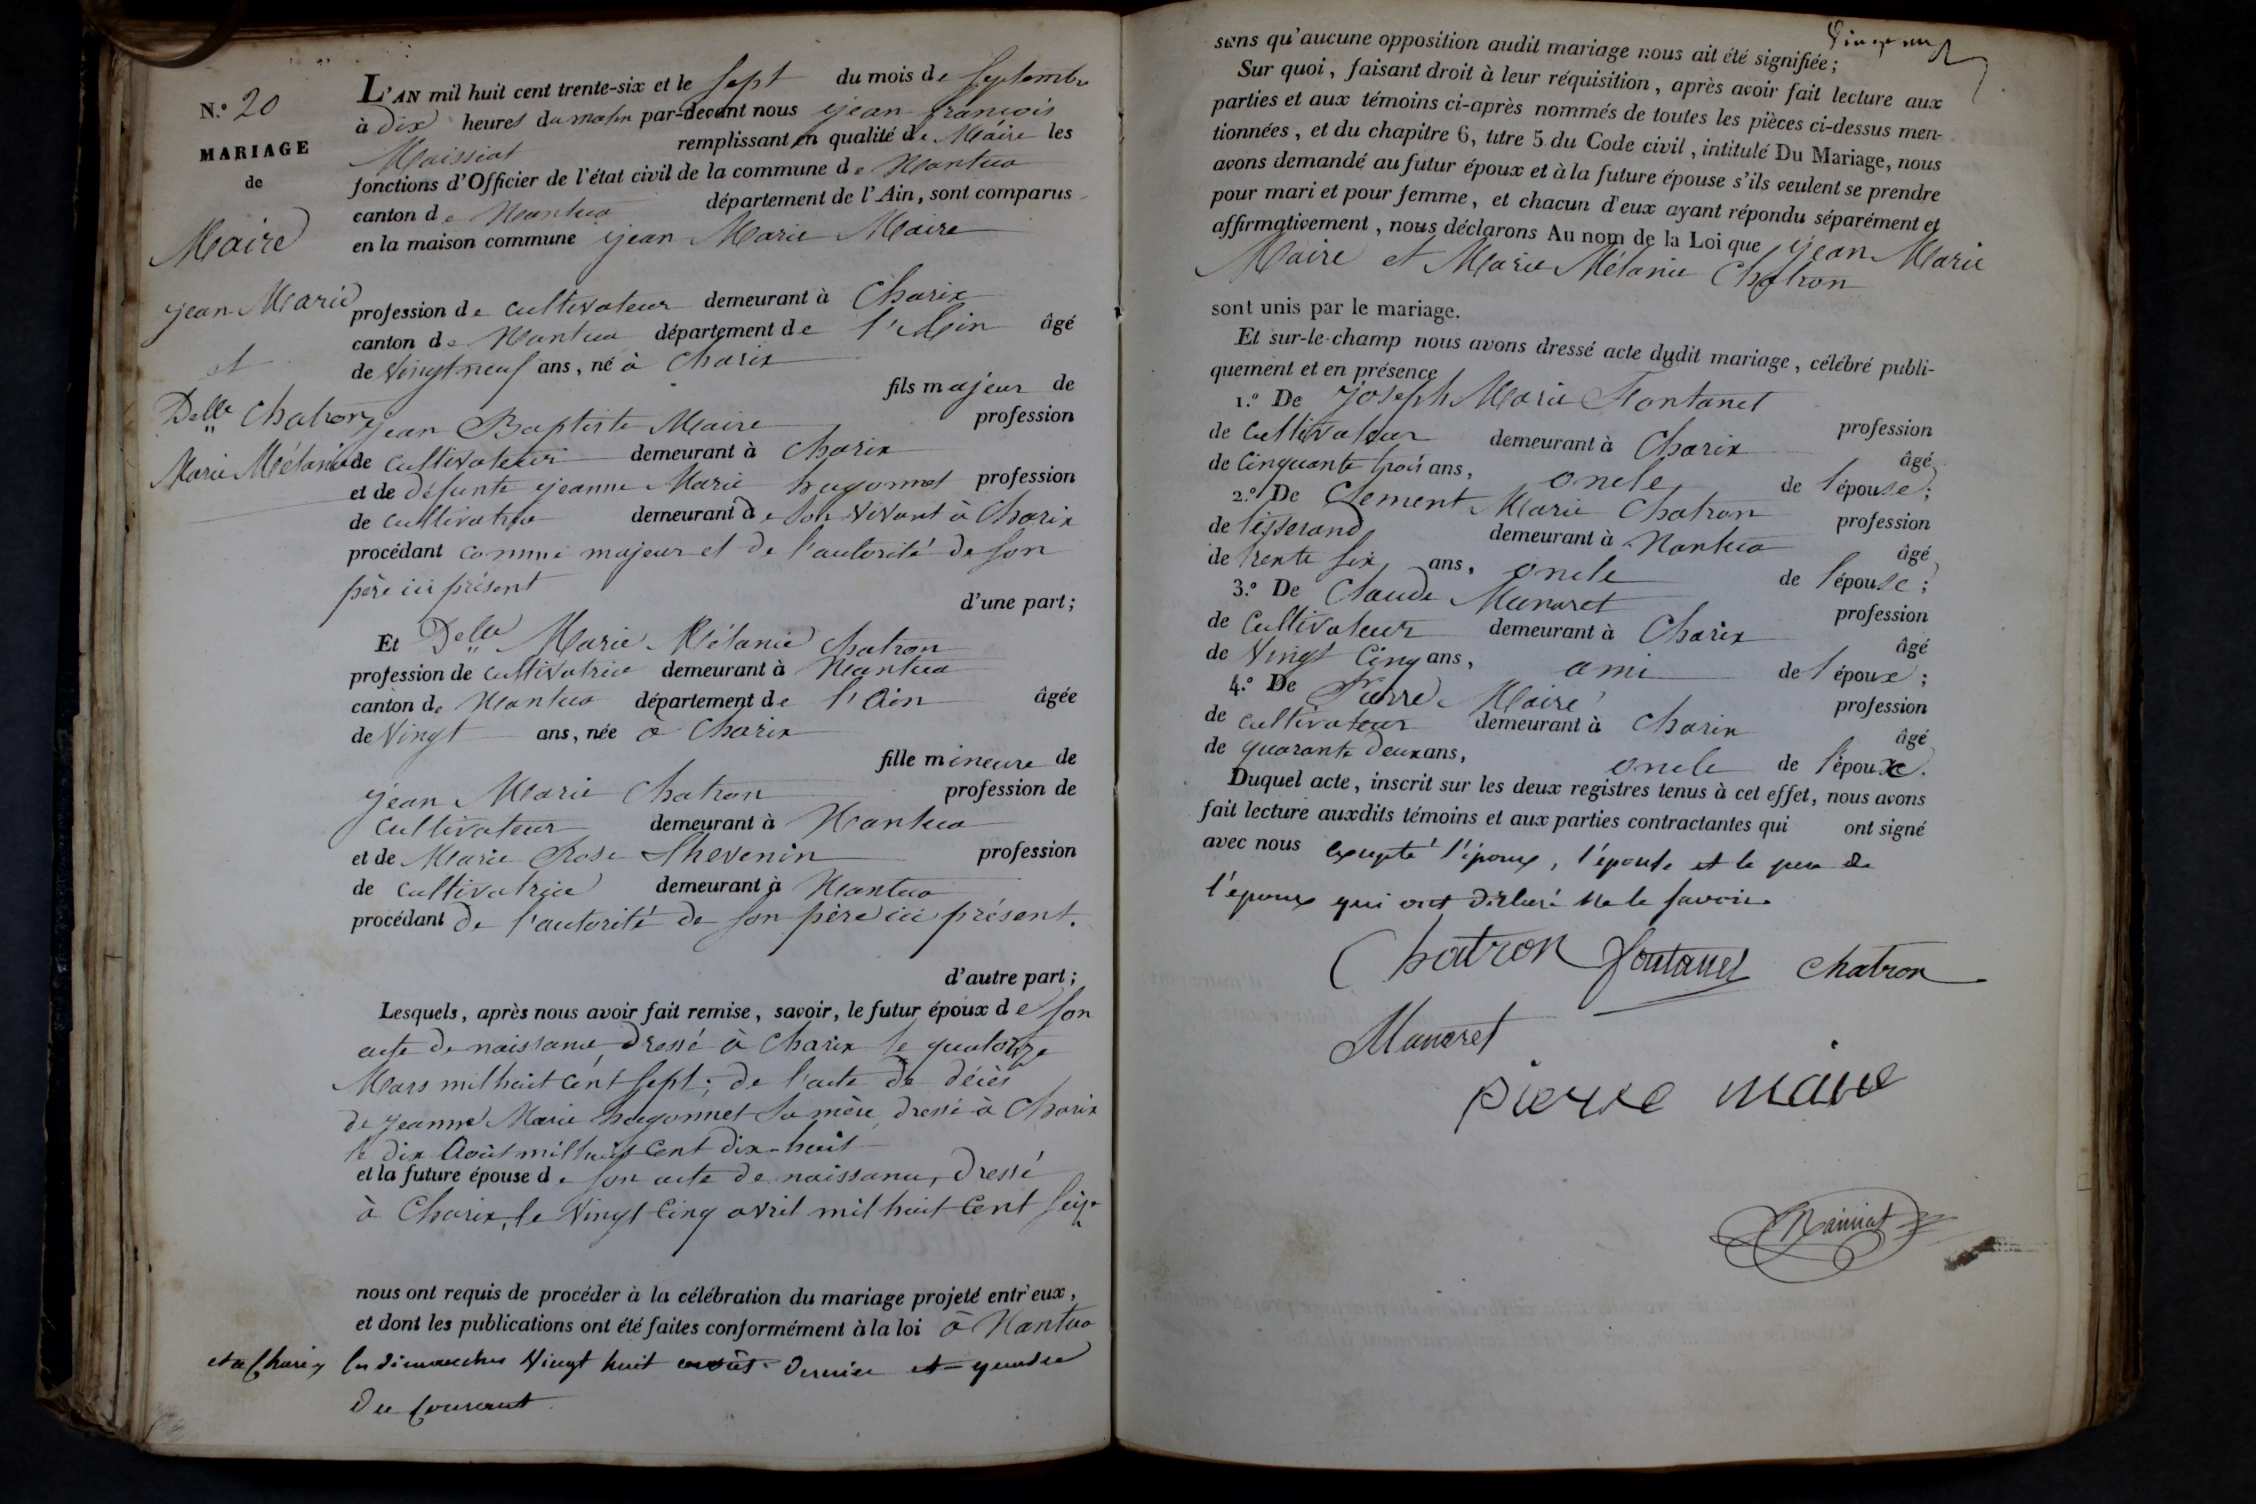 N.º 20
MARIAGE
de
Maire
jean Marie
et
Delle Chatron
Marie Mélanie
L'AN mil huit cent trente-six et le sept du mois de septembre
à Dix heures du matin par-devant nous jean françois
Maissiat remplissant en qualité de Maire les
fonctions d'Officier de l'état civil de la commune de Nantua
canton de Nantua département de l'Ain, sont comparus
en la maison commune jean Marie Maire
profession de cultivateur demeurant à Charix
canton de Nantua département de l'Ain âgé
de Vingt neuf ans, né à Charix
fils majeur de
jean Baptiste Maire profession
de cultivateur demeurant à Charix
et de défunte jeanne Marie hugonnet profession
de cultivatrice demeurant de son vivant à Charix
procédant comme majeur et de l'autorité de son
père ici présent
d'une part;
Et Delle Marie Mélanie Chatron
profession de cultivatrice demeurant à Nantua
canton de Nantua département de l'Ain âgée
de Vingt ans, née à Charix
fille mineure de
jean Marie Chatron profession de
Cultivateur demeurant à Nantua
et de Marie Rose Thevenin profession
de cultivatrice demeurant à Nantua
procédant de l'autorité de son père ici présent.
d'autre part;
Lesquels, après nous avoir fait remise, savoir, le futur époux de son
acte de naissance, Dressé à Charix le quatorze
Mars mil huit cent sept; de l'acte de décès
de jeanne Marie hugonnet sa mère, dressé à Charix
le dix Août mil huit Cent dix-huit
et la future épouse de son acte de naissance, Dressé
à Charix, le Vingt Cinq avril mil huit Cent seize
nous ont requis de procéder à la célébration du mariage projeté entr'eux,
et dont les publications ont été faites conformément à la loi à Nantua
et à Charix les dimanches Vingt huit août dernier et quatre
Du Courant
sans qu'aucune opposition audit mariage nous ait été signifiée;
Sur quoi, faisant droit à leur réquisition, après avoir fait lecture aux
parties et aux témoins ci-après nommés de toutes les pièces ci-dessus men-
tionnées, et du chapitre 6, titre 5 du Code civil, intitulé Du Mariage, nous
avons demandé au futur époux et à la future épouse s'ils veulent se prendre
pour mari et pour femme, et chacun d'eux ayant répondu séparément et
affirmativement, nous déclarons Au nom de la Loi que jean Marie
Maire et Marie Mélanie Chatron
sont unis par le mariage.
Et sur-le-champ nous avons dressé acte dudit mariage, célébré publi-
quement et en présence
1.º De Joseph Marie Fontanet profession
de Cultivateur demeurant à Charix âgé
de Cinquante trois ans, oncle de l'épouse;
2.º De Clement Marie Chatron profession
de tisserand demeurant à Nantua âgé
de trente six ans, oncle de l'épouse;
3.º De Claude Manaret profession
de Cultivateur demeurant à Charix âgé
de Vingt Cinq ans, ami de l'époux;
4.º De Pierre Maire profession
de cultivateur demeurant à Charix âgé
de quarante Deux ans, oncle de l'époux.
Duquel acte, inscrit sur les deux registres tenus à cet effet, nous avons
fait lecture auxdits témoins et aux parties contractantes qui ont signé
avec nous excepté l'époux, l'épouse et le père de
l'époux qui ont déclaré ne le savoir
Chatron fontanet Chatron
Manaret
pierre maire
Maissiat